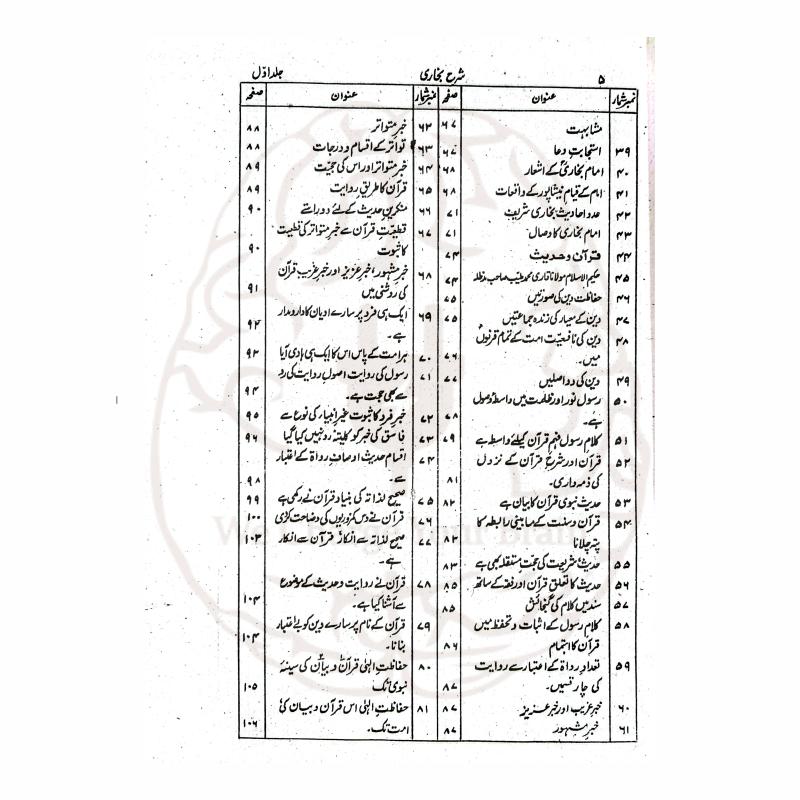 ۵ شرح بخاری جلد اوّل
نمبرشمار عنوان صفحہ
مشابہت ۶۷
۳۹ استجابتِ دعا ۶۷
۴۰ امام بخاریؒ کے اشعار ۶۸
۴۱ امام کے قیام نیشاپور کے واقعات ۶۸
۴۲ عدد احادیث بخاری شریف ۷۱
۴۳ امام بخاری کا وصال ۷۱
۴۴ قرآن و حدیث ۷۴
۴۵ حکیم الاسلام مولانا قاری محمد طیب صاحب مدظلہ
۴۶ حفاظت دین کی صورتیں ۷۵
۴۷ دین کے معیار کی زندہ جماعتیں ۷۵
۴۸ دین کی نافعیّت امت کے تمام قرنوں
میں۔ ۷۶
۴۹ دین کی دو اصلیں ۷۷
۵۰ رسول نور اور ظلمت میں واسطۂ وصول
ہے۔ ۷۸
۵۱ کلام رسول فہم قرآن کیلئے واسطہ ہے ۷۹
۵۲ قرآن اور شرح قرآن کے نزول
کی ذمہ داری۔ ۸۱
۵۳ حدیث نبوی قرآن کا بیان ہے ۸۲
۵۴ قرآن و سنت کے مابینی رابطہ کا
پتہ چلانا ۸۲
۵۵ حدیث، شریعت کی حجتِ مستقلہ بھی ہے ۸۳
۵۶ حدیث کا تعلق قرآن اور فقہ کے ساتھ ۸۵
۵۷ سند میں کلام کی گنجائش ۸۵
۵۸ کلام رسول کے اثبات و تحفظ میں
قرآن کا اہتمام ۸۶
۵۹ تعداد رواۃ کے اعتبار سے روایت
کی چار قسمیں۔ ۸۷
۶۰ خبر غریب اور خبر عزیز ۸۷
۶۱ خبر مشہور ۸۷
نمبرشمار عنوان صفحہ
۶۲ خبر متواتر ۸۸
۶۳ تواتر کے اقسام و درجات ۸۸
۶۴ خبر متواتر اور اس کی حجیّت ۸۹
۶۵ قرآن کا طریق روایت ۸۹
۶۶ منکرین حدیث کے لئے دو راستے ۹۰
۶۷ قطعیّت قرآن سے خبر متواتر کی قطعیت
کا ثبوت ۹۰
۶۸ خبر مشہور، خبر عزیز اور خبر غریب قرآن
کی روشنی میں ۹۱
۶۹ ایک ہی فرد پر سارے ادیان کا دارو مدار
ہے۔ ۹۲
۷۰ ہر امت کے پاس اس کا ایک ہی ہادی آیا ۹۳
۷۱ رسول کی روایت اصولِ روایت کی رو
سے بھی حجت ہے۔ ۹۴
۷۲ خبر فرد کا ثبوت غیر انبیاء کی نوع سے ۹۵
۷۳ فاسق کی خبر کو کلیتہً رد نہیں کیا گیا ۹۶
۷۴ اقسام حدیث اوصاف رواۃ کے اعتبار
سے۔ ۹۸
۷۵ صحیح لذاتہ کی بنیاد قرآن نے رکھی ہے ۹۹
۷۶ قرآن نے دس کمزوریوں کی وضاحت کردی ۱۰۰
۷۷ صحیح لذاتہ سے انکار، قرآن سے انکار ۱۰۳
ہے۔
۷۸ قرآن نے روایت و حدیث کے موضوع
سے آشنا کیا ہے۔ ۱۰۴
۷۹ قرآن کے نام پر سارے دین کو بے اعتبار
بنانا۔ ۱۰۴
۸۰ حفاظتِ الٰہی قرآن و بیان کی سینۂ
نبوی تک ۱۰۵
۸۱ حفاظتِ الٰہی اس قرآن و بیان کی
امت تک۔ ۱۰۶